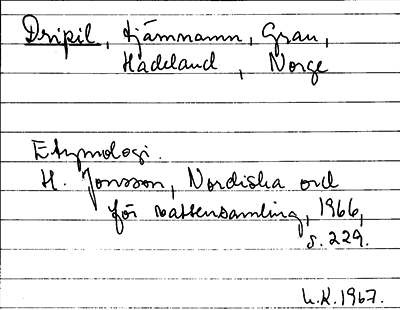 Dripil, tjärnnamn, Gran,
Hadeland, Norge
Etymologi.
H. Jonsson, Nordiska ord
för vattensamling, 1966,
s. 229.
L.K. 1967.